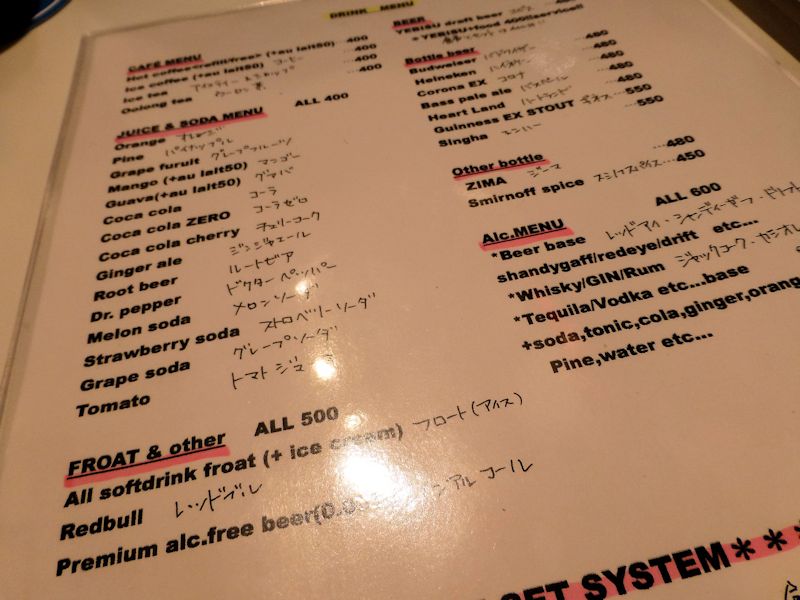 DRINK MENU
CAFÉ MENU
Hot coffee<refill/free> (+au lait50) ...400
Ice coffee (+au lait50) コーヒー ...400
Ice tea アイスティー ...400
Oolong tea ウーロン茶
JUICE & SODA MENU ALL 400
Orange オレンジ
Pine パイナップル
Grape furuit グレープフルーツ
Mango(+au lait50) マンゴー
Guava(+au lait50) グァバ
Coca cola コーラ
Coca cola ZERO コーラゼロ
Coca cola cherry チェリーコーク
Ginger ale ジンジャエール
Root beer ルートビア
Dr. pepper ドクターペッパー
Melon soda メロンソーダ
Strawberry soda ストロベリーソーダ
Grape soda グレープソーダ
Tomato トマトジュース
FROAT & other ALL 500
All softdrink froat (+ ice cream) フロート(アイス)
Redbull レッドブル
Premium alc.free beer(0.0 ンアルコール
BEER
YEBISU draft beer エビス ...480
*YEBISU+food 400!!service!!
Bottle beer
Budweiser バドワイザー 480
Heineken ハイネケン 480
Corona EX コロナ 480
Bass pale ale バスペール 480
Heart Land ハートランド 480
Guinness EX STOUT ギネス ...550
Singha シンハー 550
Other bottle
ZIMA ジーマ ...480
Smirnoff spice スミノフスパイス ...450
Alc.MENU ALL 600
*Beer base レッドアイ・シャンディーガフ・ドリフト
shandygaff/redeye/drift etc...
*Whisky/GIN/Rum ジャックコーク・カシオレ
*Tequila/Vodka etc...base
+soda,tonic,cola,ginger,orang
Pine,water etc...
SET SYSTEM***